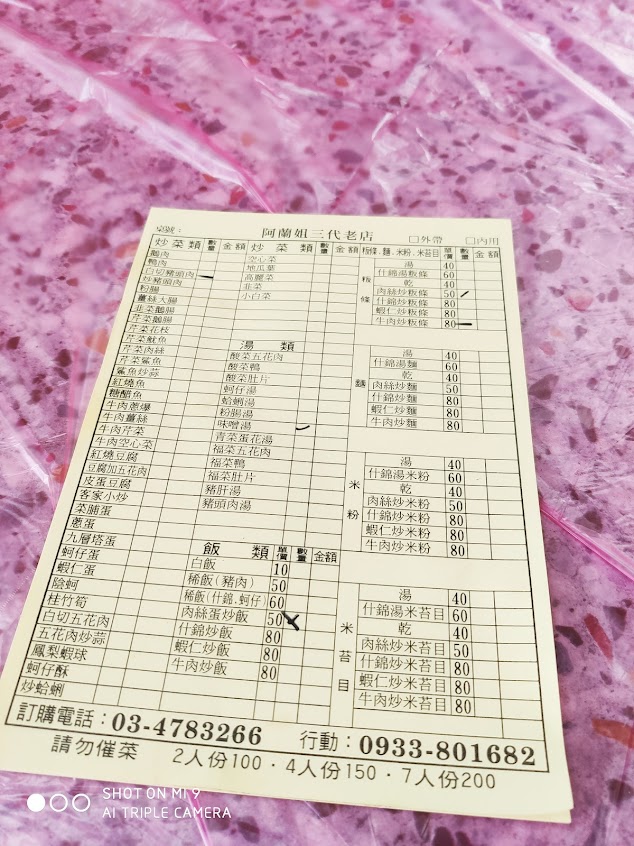 桌號：
阿蘭姐三代老店
□外帶 □內用
炒菜類 數量 金額
鵝肉
鴨肉
白切豬頭肉
炒豬頭肉
粉腸
薑絲大腸
韭菜鵝腸
芹菜鵝腸
芹菜花枝
芹菜魷魚
芹菜肉絲
芹菜鯊魚
鯊魚炒蒜
紅燒魚
糖醋魚
牛肉蔥爆
牛肉薑絲
牛肉芹菜
牛肉空心菜
紅燒豆腐
豆腐加五花肉
皮蛋豆腐
客家小炒
菜脯蛋
蔥蛋
九層塔蛋
蚵仔蛋
蝦仁蛋
陰蚵
桂竹筍
白切五花肉
五花肉炒蒜
鳳梨蝦球
蚵仔酥
炒蛤蜊
炒菜類 數量 金額
空心菜
地瓜葉
高麗菜
韭菜
小白菜
湯類
酸菜五花肉
酸菜鴨
酸菜肚片
蚵仔湯
蛤蜊湯
粉腸湯
味噌湯
青菜蛋花湯
福菜五花肉
福菜鴨
福菜肚片
豬肝湯
豬頭肉湯
飯類 單價 數量 金額
白飯 10
稀飯(豬肉) 50
稀飯(什錦.蚵仔) 60
肉絲蛋炒飯 50
什錦炒飯 80
蝦仁炒飯 80
牛肉炒飯 80
粄條.麵.米粉.米苔目 單價 數量 金額
粄條
湯 40
什錦湯粄條 60
乾 40
肉絲炒粄條 50
什錦炒粄條 80
蝦仁炒粄條 80
牛肉炒粄條 80
麵
湯 40
什錦湯麵 60
乾 40
肉絲炒麵 50
什錦炒麵 80
蝦仁炒麵 80
牛肉炒麵 80
米粉
湯 40
什錦湯米粉 60
乾 40
肉絲炒米粉 50
什錦炒米粉 80
蝦仁炒米粉 80
牛肉炒米粉 80
米苔目
湯 40
什錦湯米苔目 60
乾 40
肉絲炒米苔目 50
什錦炒米苔目 80
蝦仁炒米苔目 80
牛肉炒米苔目 80
訂購電話：03-4783266 行動：0933-801682
請勿催菜 2人份100・4人份150・7人份200
SHOT ON MI 9
AI TRIPLE CAMERA